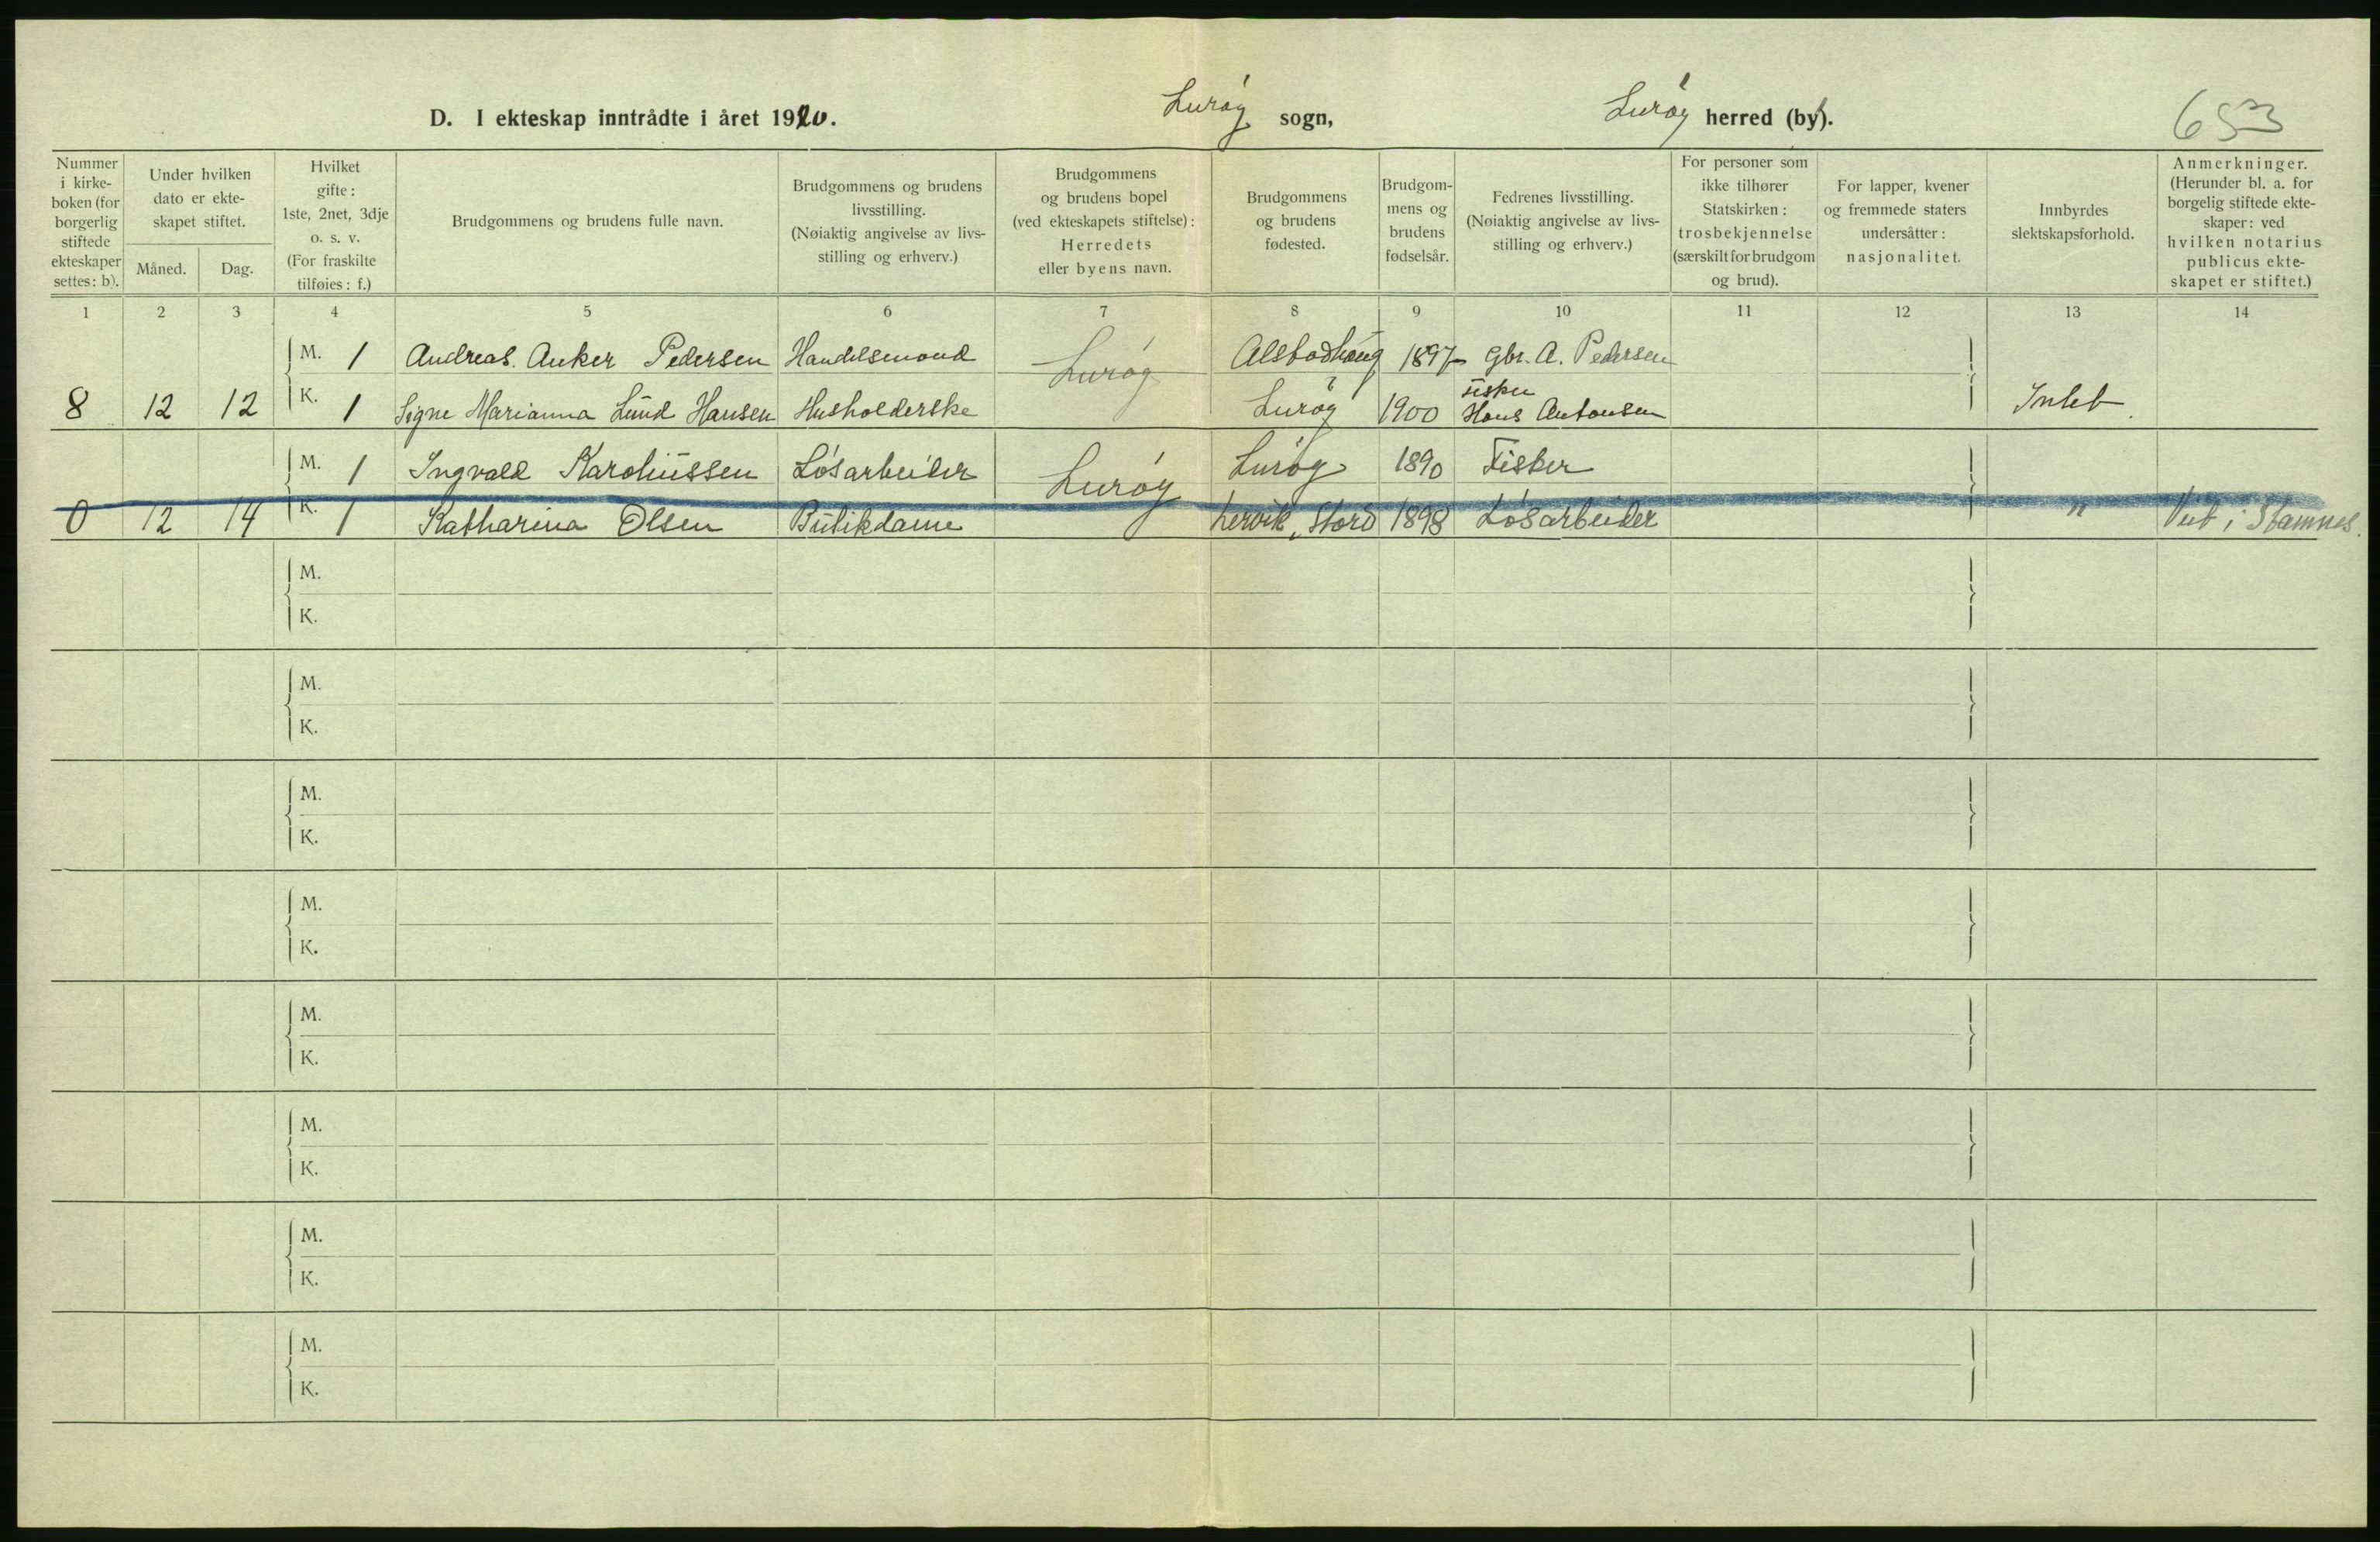 D. I ekteskap inntrådte i året 1920. Lurøy sogn, Lurøy herred (by). 653
Nummer i kirke-boken (for borgerlig stiftede ekteskaper settes: b).
Under hvilken dato er ekte-skapet stiftet.
Måned. Dag.
Hvilket gifte: 1ste, 2net, 3dje o. s. v. (For fraskilte tilføies: f.)
Brudgommens og brudens fulle navn.
Brudgommens og brudens livsstilling. (Nøiaktig angivelse av livs-stilling og erhverv.)
Brudgommens og brudens bopel (ved ekteskapets stiftelse): Herredets eller byens navn.
Brudgommens og brudens fødested.
Brudgom-mens og brudens fødselsår.
Fedrenes livsstilling. (Nøiaktig angivelse av livs-stilling og erhverv.)
For personer som ikke tilhører Statskirken: trosbekjennelse (særskilt for brudgom og brud).
For lapper, kvener og fremmede staters undersåtter: nasjonalitet.
Innbyrdes slektskapsforhold.
Anmerkninger. (Herunder bl. a. for borgelig stiftede ekte-skaper: ved hvilken notarius publicus ekte-skapet er stiftet.)
1 2 3 4 5 6 7 8 9 10 11 12 13 14
M. 1 Andreas Anker Pedersen Handelsmand Lurøy Alstadhaug 1897 Gbr. A. Pedersen
8 12 12 K. 1 Signe Marianna Lund Hansen Husholderske Lurøy 1900 Fisker Hans Antonsen Intet
M. 1 Ingvald Karoliussen Løsarbeider Lurøy Lurøy 1890 Fisker
0 12 14 K. 1 Katharina Olsen Butikdame Lervik, Stord 1898 Løsarbeider " Viet i Stamnes.
M.
K.
M.
K.
M.
K.
M.
K.
M.
K.
M.
K.
M.
K.
M.
K.